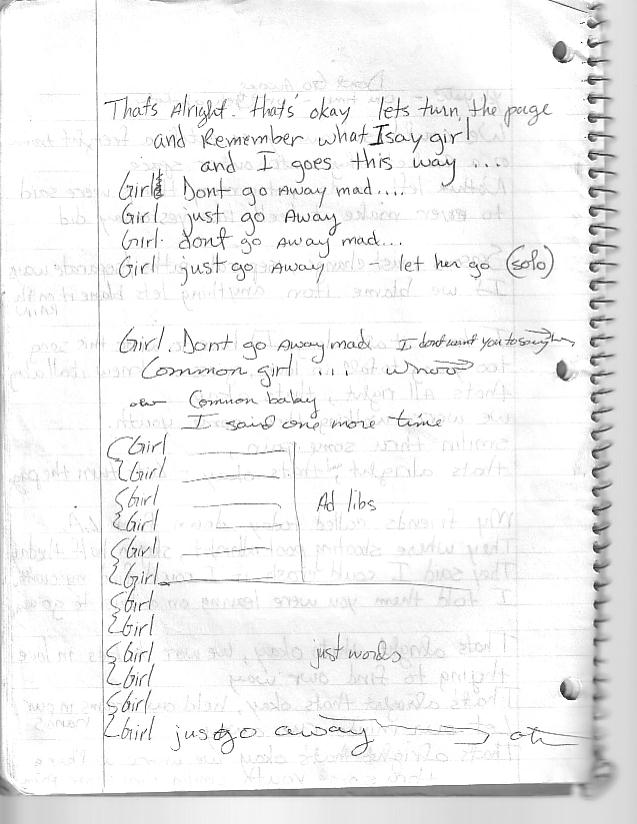 Thats Alright. that's okay lets turn the page
and Remember what I say girl
and I goes this way ...
Girl Dont go Away mad....
Girl. just go Away
Girl. dont go away mad...
Girl just go Away - let her go (solo)
Girl. Dont go Away mad I dont want you to
Common girl ....
Common baby
I said one more time
Girl
Girl
Girl
Girl
Ad libs
Girl
Girl
Girl
Girl
Girl just words
Girl
Girl
Girl just go away